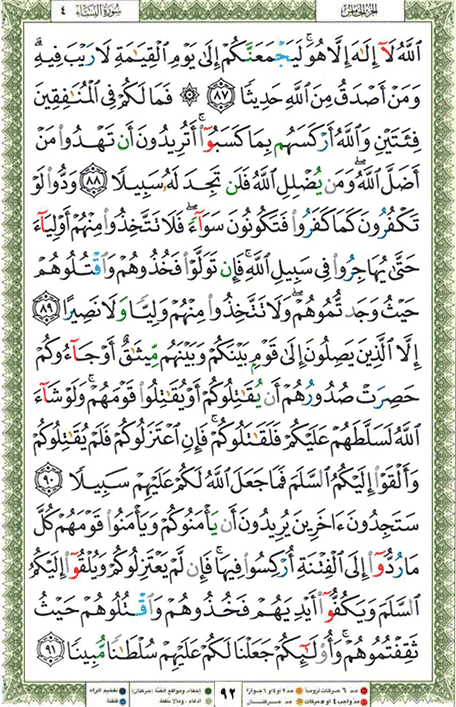 سُورَةُ النِّسَاءِ ٤
الجزء الخامس
ٱللَّهُ لَآ إِلَٰهَ إِلَّا هُوَۚ لَيَجْمَعَنَّكُمْ إِلَىٰ يَوْمِ ٱلْقِيَٰمَةِ لَا رَيْبَ فِيهِۗ
وَمَنْ أَصْدَقُ مِنَ ٱللَّهِ حَدِيثًا ٨٧ ۞ فَمَا لَكُمْ فِى ٱلْمُنَٰفِقِينَ
فِئَتَيْنِ وَٱللَّهُ أَرْكَسَهُم بِمَا كَسَبُوٓا۟ۚ أَتُرِيدُونَ أَن تَهْدُوا۟ مَنْ
أَضَلَّ ٱللَّهُۖ وَمَن يُضْلِلِ ٱللَّهُ فَلَن تَجِدَ لَهُۥ سَبِيلًا ٨٨ وَدُّوا۟ لَوْ
تَكْفُرُونَ كَمَا كَفَرُوا۟ فَتَكُونُونَ سَوَآءًۖ فَلَا تَتَّخِذُوا۟ مِنْهُمْ أَوْلِيَآءَ
حَتَّىٰ يُهَاجِرُوا۟ فِى سَبِيلِ ٱللَّهِۚ فَإِن تَوَلَّوْا۟ فَخُذُوهُمْ وَٱقْتُلُوهُمْ
حَيْثُ وَجَدتُّمُوهُمْۖ وَلَا تَتَّخِذُوا۟ مِنْهُمْ وَلِيًّا وَلَا نَصِيرًا ٨٩
إِلَّا ٱلَّذِينَ يَصِلُونَ إِلَىٰ قَوْمٍۭ بَيْنَكُمْ وَبَيْنَهُم مِّيثَٰقٌ أَوْ جَآءُوكُمْ
حَصِرَتْ صُدُورُهُمْ أَن يُقَٰتِلُوكُمْ أَوْ يُقَٰتِلُوا۟ قَوْمَهُمْۚ وَلَوْ شَآءَ
ٱللَّهُ لَسَلَّطَهُمْ عَلَيْكُمْ فَلَقَٰتَلُوكُمْۚ فَإِنِ ٱعْتَزَلُوكُمْ فَلَمْ يُقَٰتِلُوكُمْ
وَأَلْقَوْا۟ إِلَيْكُمُ ٱلسَّلَمَ فَمَا جَعَلَ ٱللَّهُ لَكُمْ عَلَيْهِمْ سَبِيلًا ٩٠
سَتَجِدُونَ ءَاخَرِينَ يُرِيدُونَ أَن يَأْمَنُوكُمْ وَيَأْمَنُوا۟ قَوْمَهُمْ كُلَّ
مَا رُدُّوٓا۟ إِلَى ٱلْفِتْنَةِ أُرْكِسُوا۟ فِيهَاۚ فَإِن لَّمْ يَعْتَزِلُوكُمْ وَيُلْقُوٓا۟ إِلَيْكُمُ
ٱلسَّلَمَ وَيَكُفُّوٓا۟ أَيْدِيَهُمْ فَخُذُوهُمْ وَٱقْتُلُوهُمْ حَيْثُ
ثَقِفْتُمُوهُمْۚ وَأُو۟لَٰٓئِكُمْ جَعَلْنَا لَكُمْ عَلَيْهِمْ سُلْطَٰنًا مُّبِينًا ٩١
٩٢